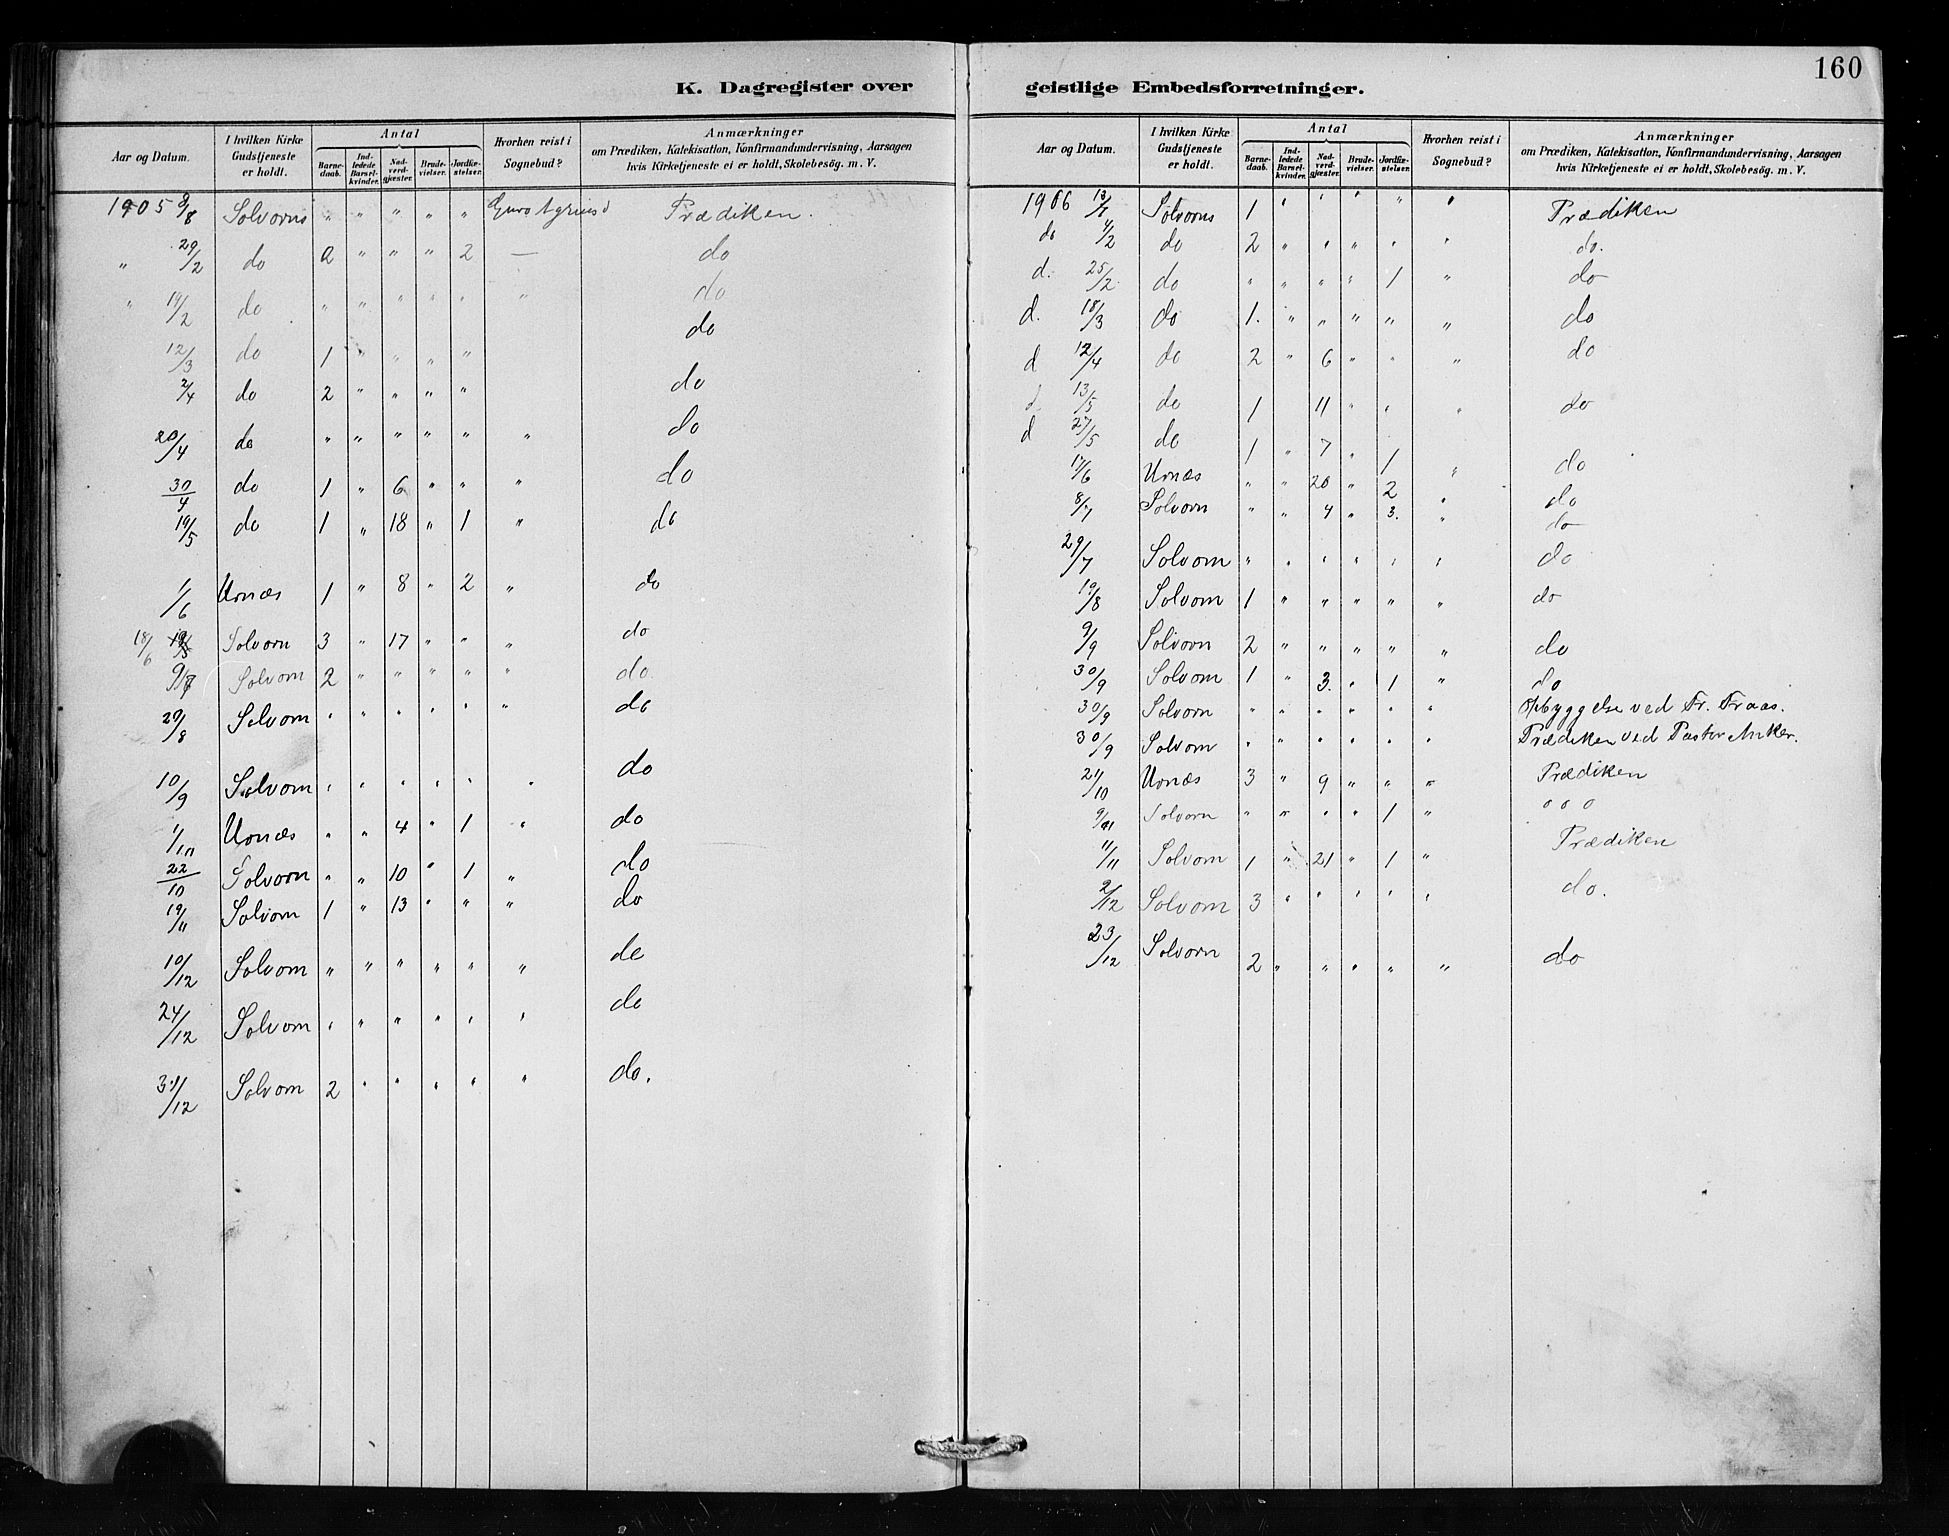 160
K. Dagregister over geistlige Embedsforretninger.
Aar og Datum. | I hvilken Kirke Gudstjeneste er holdt. | Antal | Barnedaab. | Indledede Barselkvinder. | Nadverdgjæster. | Brudevielser. | Jordfæstelser. | Hvorhen reist i Sognebud? | Anmærkninger om Prædiken, Katekisation, Konfirmandundervisning, Aarsagen hvis Kirketjeneste ei er holdt, Skolebesøg. m. V.
1905 | Solvorn | " | " | " | " | " | | Prædiken.
" 29/2 | do | 2 | " | " | " | 2 | — | do
" 19/2 | do | " | " | " | " | " | " | do
12/3 | do | 1 | " | " | " | " | | do
2/4 | do | 2 | " | " | " | " | | do
20/4 | do | " | " | " | " | " | " | do
30/4 | do | 1 | " | 6 | " | " | " | do
19/5 | do | 1 | " | 18 | " | 1 | " | do
1/6 | Urnæs | 1 | " | 8 | " | 2 | " | do
18/6 | Solvorn | 3 | " | 17 | " | " | " | do
9/7 | Solvorn | 2 | " | " | " | " | " | do.
20/8 | Solvorn | " | " | " | " | " | " | do
10/9 | Solvorn | " | " | " | " | " | " | do
1/10 | Urnæs | " | " | 4 | " | 1 | " | do
22/10 | Solvorn | " | " | 10 | " | 1 | " | do
19/11 | Solvorn | 1 | " | 13 | " | " | " | do
10/12 | Solvorn | " | " | " | " | " | " | do
24/12 | Solvorn | " | " | " | " | " | " | do
31/12 | Solvorn | 2 | " | " | " | " | " | do.
Aar og Datum. | I hvilken Kirke Gudstjeneste er holdt. | Antal | Barnedaab. | Indledede Barselkvinder. | Nadverdgjæster. | Brudevielser. | Jordfæstelser. | Hvorhen reist i Sognebud? | Anmærkninger om Prædiken, Katekisation, Konfirmandundervisning, Aarsagen hvis Kirketjeneste ei er holdt, Skolebesøg. m. V.
1906 | Solvorn | 1 | " | " | " | " | " | Prædiken
do 4/2 | do | 2 | " | " | " | " | " | do.
d. 25/2 | do | " | " | " | " | 1 | " | do
d. 18/3 | do | 1. | " | " | " | " | " | do
d 12/4 | do | 2 | " | 6 | " | " | " | do
d 13/5 | do | 1 | | 11 | " | " | " | do
d 27/5 | do | 1 | " | 7 | " | 1 | " | do
17/6 | Urnæs | " | " | 20 | " | 2 | " | do
8/7 | Solvorn | " | " | 4 | " | 3. | " | do
29/7 | Solvorn | " | " | " | " | " | " | do
19/8 | Solvorn | 1 | " | " | " | " | " | do
9/9 | Solvorn | 2 | " | " | " | " | " | do
30/9 | Solvorn | 1 | " | 3. | " | 1 | " | do
30/9 | Solvorn | " | " | " | " | " | " | Opbyggelse ved Fr. Traas.
30/9 | Solvorn | " | " | " | " | " | " | Prædiken ved Pastor Anker.
21/10 | Urnæs | 3 | " | 9 | " | " | " | Prædiken
9/11 | Solvorn | " | " | " | " | 1 | " | o o o
11/11 | Solvorn | 1 | " | 21 | " | 1 | " | Prædiken
2/12 | Solvorn | 3 | " | " | " | " | " | do.
23/12 | Solvorn | 2 | " | " | " | " | " | do